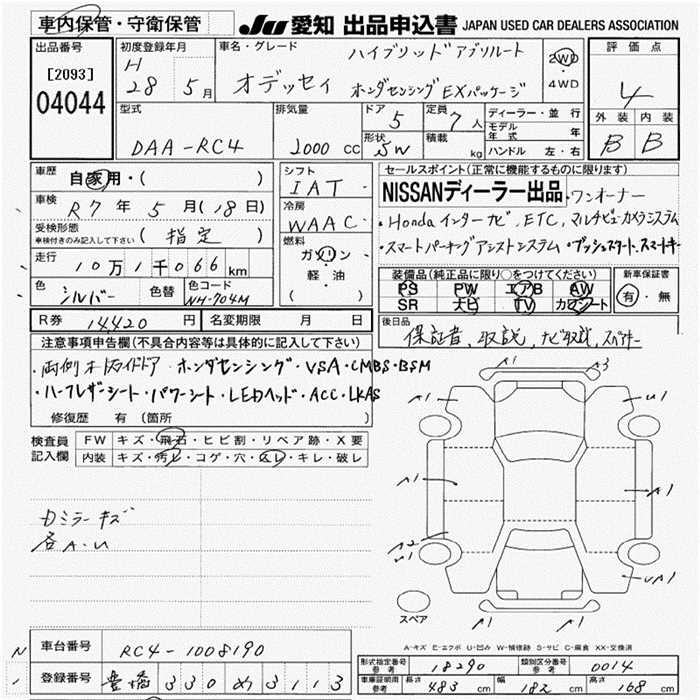 車内保管・守衛保管 JU 愛知 出品申込書 JAPAN USED CAR DEALERS ASSOCIATION
出品番号 初度登録年月 車名・グレード ハイブリッド アブソルート 2WD・4WD 評価点
[2093] H28 5月 オデッセイ ホンダセンシング EXパッケージ 4
04044 型式 排気量 ドア 5 定員 7人 ディーラー・並行 外装 内装
モデル年式 年
DAA-RC4 2000 cc 形状 SW 積載 kg ハンドル 左・右 B B
車歴 自家用・( ) シフト IAT セールスポイント(正常に機能するものに限ります)
車検 R7年 5月(18日) 冷房 WAAC NISSANディーラー出品・ワンオーナー
受検形態 車検付きのみ記入して下さい (指定) 燃料 ガソリン 軽・油 ( )
・Hondaインターナビ、ETC、マルチビューカメラシステム
・スマートパーキングアシストシステム・プッシュスタート、スマートキー
走行 10万1千066km
装備品(純正品に限り○をつけてください) 新車保証書
色 シルバー 色替 色コード NH-704M PS PW エアB AW 有・無
SR ナビ TV カワシート
R券 14,420円 名変期限 月 日 後日品
保証書、取説、ナビ取説、スペアキー
注意事項申告欄(不具合内容等は具体的に記入して下さい)
・両側オートスライドドア・ホンダセンシング・VSA・CMBS・BSM
・ハーフレザーシート・パワーシート・LEDヘッド・ACC・LKAS
修復歴 有(箇所 )
検査員記入欄 FW キズ・飛石・ヒビ割・リペア跡・X要
内装 キズ・汚レ・コゲ・穴・スレ・キレ・破レ
Dミラーキズ
各A・U
A1 A3
A1 U1
A1 A1
A2
U1 UA1
A1 A1
スペア
A-キズ E-エクボ U-凹み W-補修跡 S-サビ C-腐食 XX-交換済
車台番号 RC4-1008190
登録番号 豊橋 330 め 3113
形式指定番号 参考 18290 類別区分番号 参考 0014
車庫証明用 参考 長さ 483 cm 幅 182 cm 高さ 168 cm